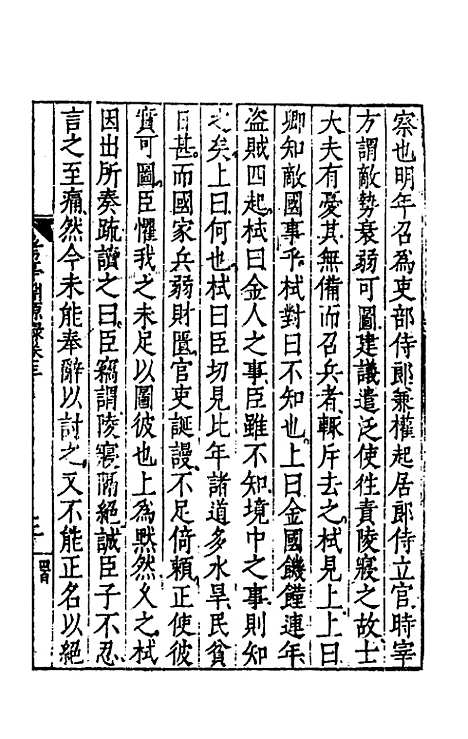 察也明年召爲吏部侍郎兼權起居郎侍立官時宰
方謂敵勢衰弱可圖建議遣泛使往責陵寢之故士
大夫有憂其無備而召兵者輒斥去之栻見上上曰
卿知敵國事乎栻對曰不知也上曰金國饑饉連年
盜賊四起栻曰金人之事臣雖不知境中之事則知
之矣上曰何也栻曰臣切見比年諸道多水旱民貧
日甚而國家兵弱財匱官吏誕謾不足倚賴正使彼
實可圖臣懼我之未足以圖彼也上爲默然久之栻
因出所奏疏讀之曰臣竊謂陵寢隔絕誠臣子不忍
言之至痛然今未能奉辭以討之又不能正名以絕